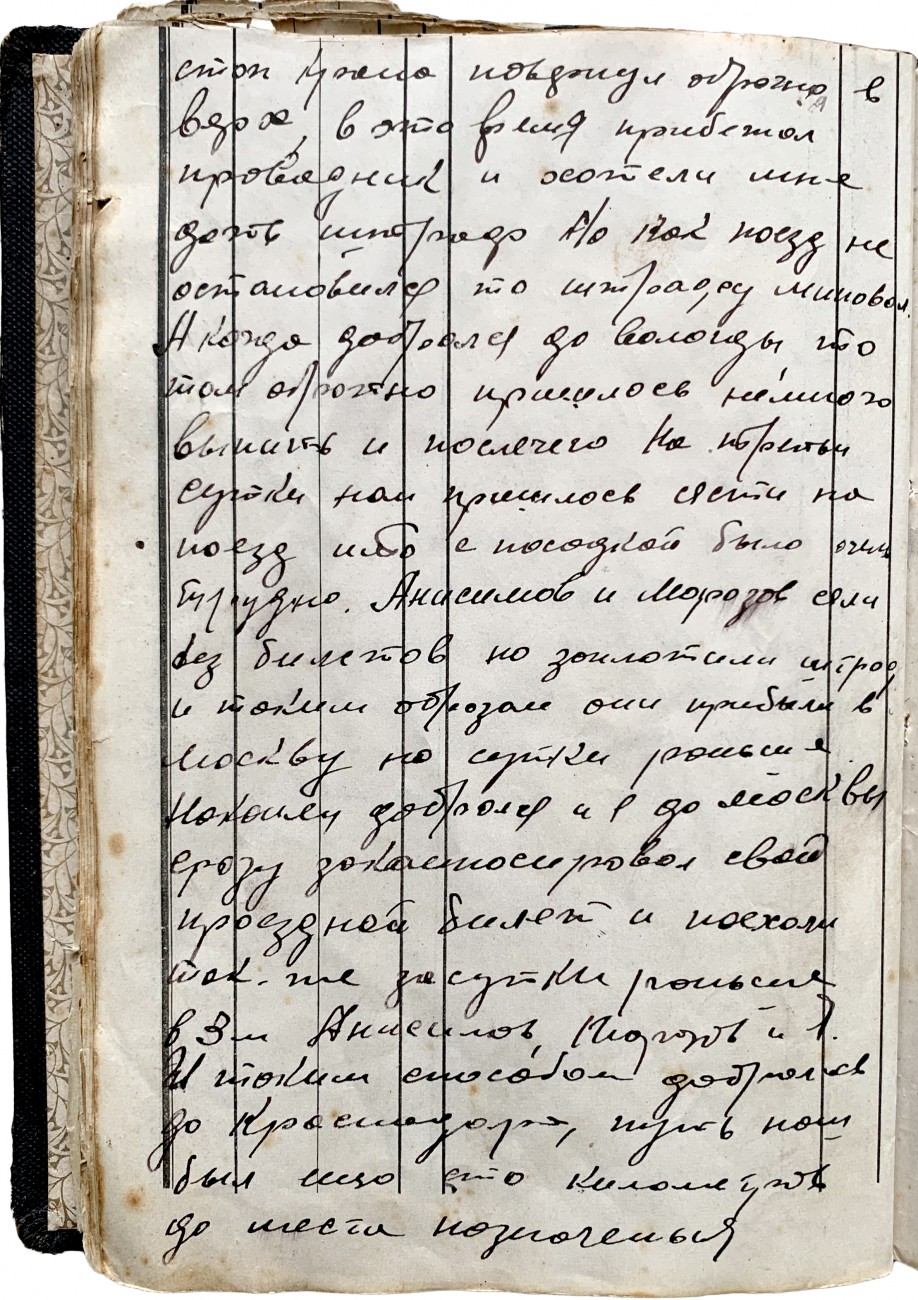 стоп крана повернул обратно в
верх, в это время прибежал
проводник и хотели мне
дать штраф Но как поезд не
остановился то штраф я миновал.
А когда добрался до вологды то
там обратно пришлось немного
выпить и послечего На третьи
сутки нам пришлось сясти на
поезд ибо с посадкой было очень
трудно. Анисимов и Морозов сели
без билетов но заплатили штраф
и таким образом они прибыли в
Москву на сутки раньше
Наконец добрался и я до Москвы
сразу закампосировал свой
проездной билет и поехали
так-же за сутки раньше
в 3м Анисимов, Морозов и Я.
И таким способом добрались
до Краснодара, путь наш
был ищо сто километров
до места назначенья